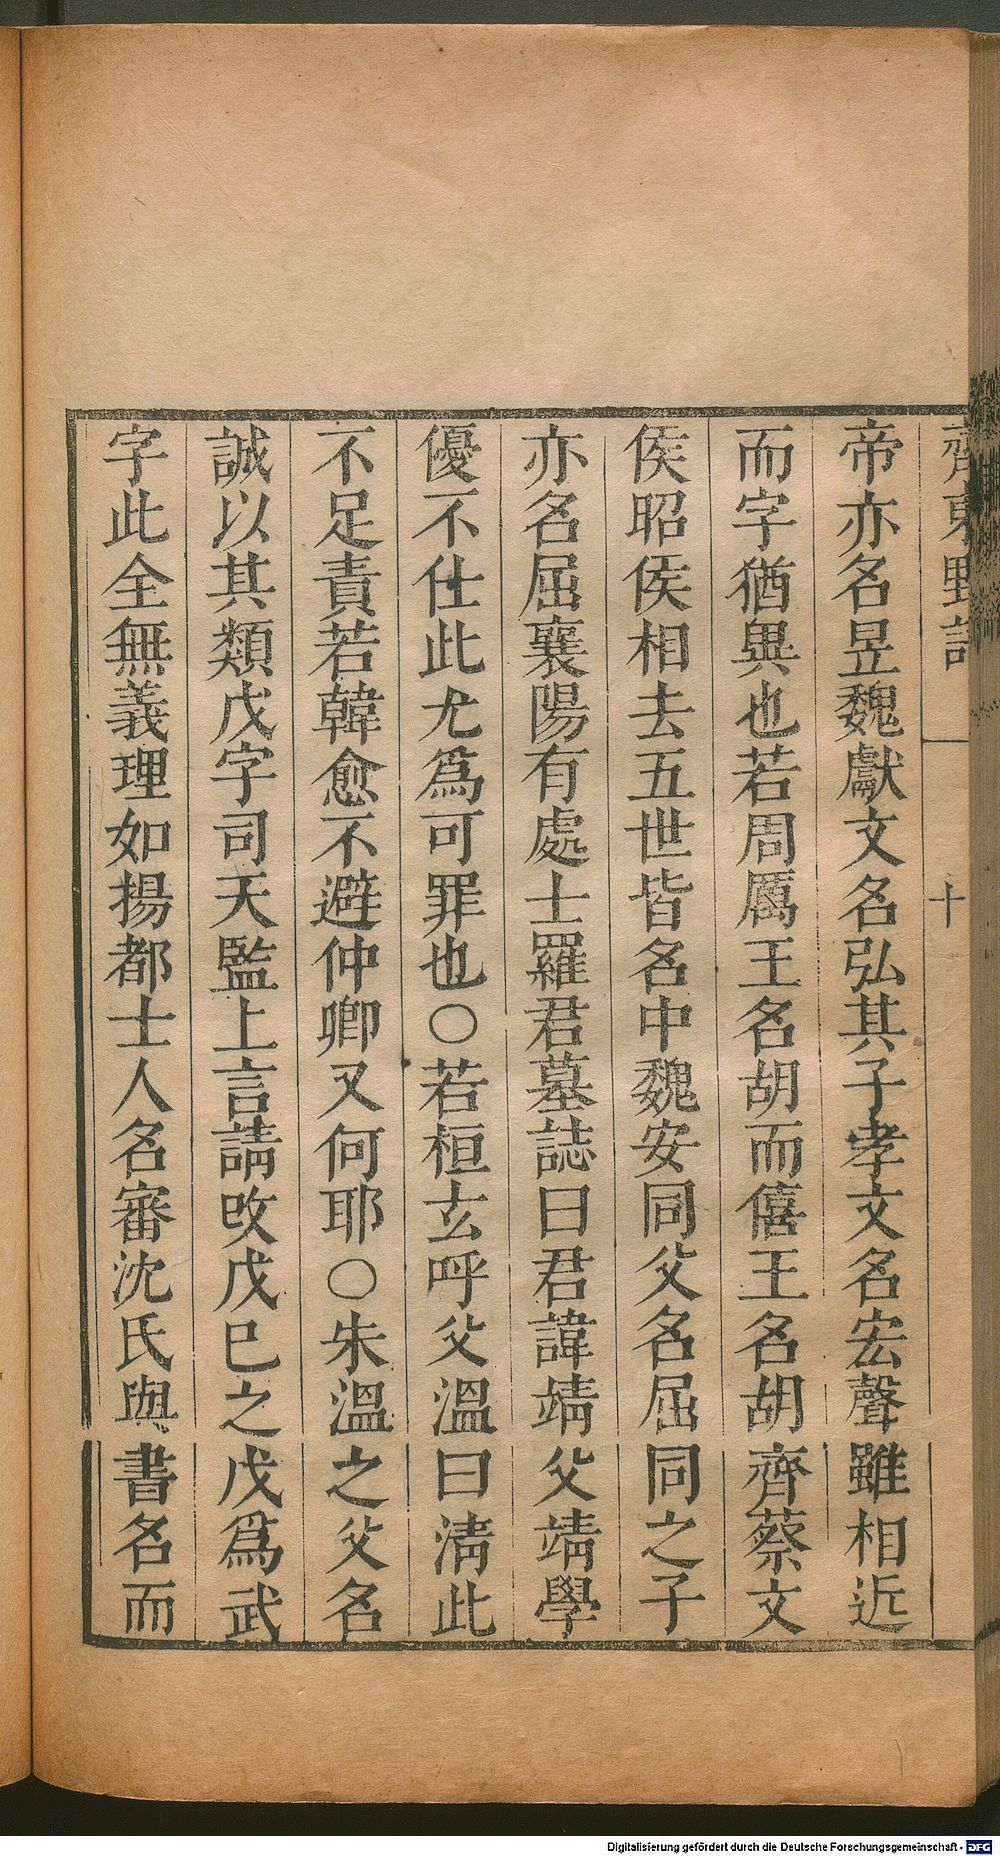 齊東野語
一
十
帝亦名昱魏獻文名弘其子孝文名宏聲雖相近
而字猶異也若周厲王名胡而僖王名胡齊蔡文
侯昭侯相去五世皆名申魏安同父名屈同之子
亦名屈襄陽有處士羅君墓誌曰君諱靖父靖學
優不仕此尤爲可罪也〇若桓玄呼父溫曰清此
不足責若韓愈不避仲卿又何耶〇朱溫之父名
誠以其類戊字司天監上言請改戊巳之戊爲武
字此全無義理如揚都士人名審沈氏與書名而
Digitalisierung gefördert durch die Deutsche Forschungsgemeinschaft - DFG